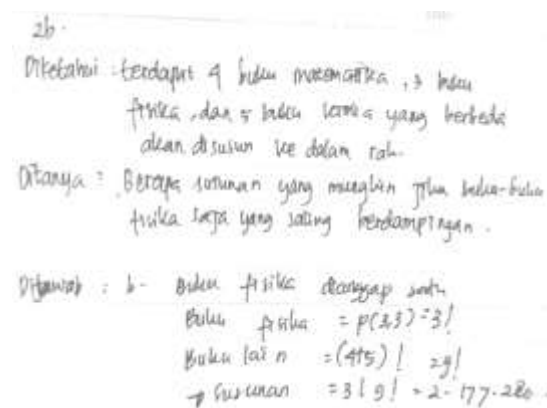 2b.
Diketahui : terdapat 4 buku matematika, 3 buku
fisika, dan 5 buku kimia yang berbeda
akan disusun ke dalam rak.
Ditanya : Berapa susunan yang mungkin jika buku-buku
fisika saja yang saling berdampingan.
Dijawab : b - Buku fisika dianggap satu
Buku fisika = P(3,3) = 3!
Buku lain = (4+5)! = 9!
→ Susunan = 3! 9! = 2.177.280.